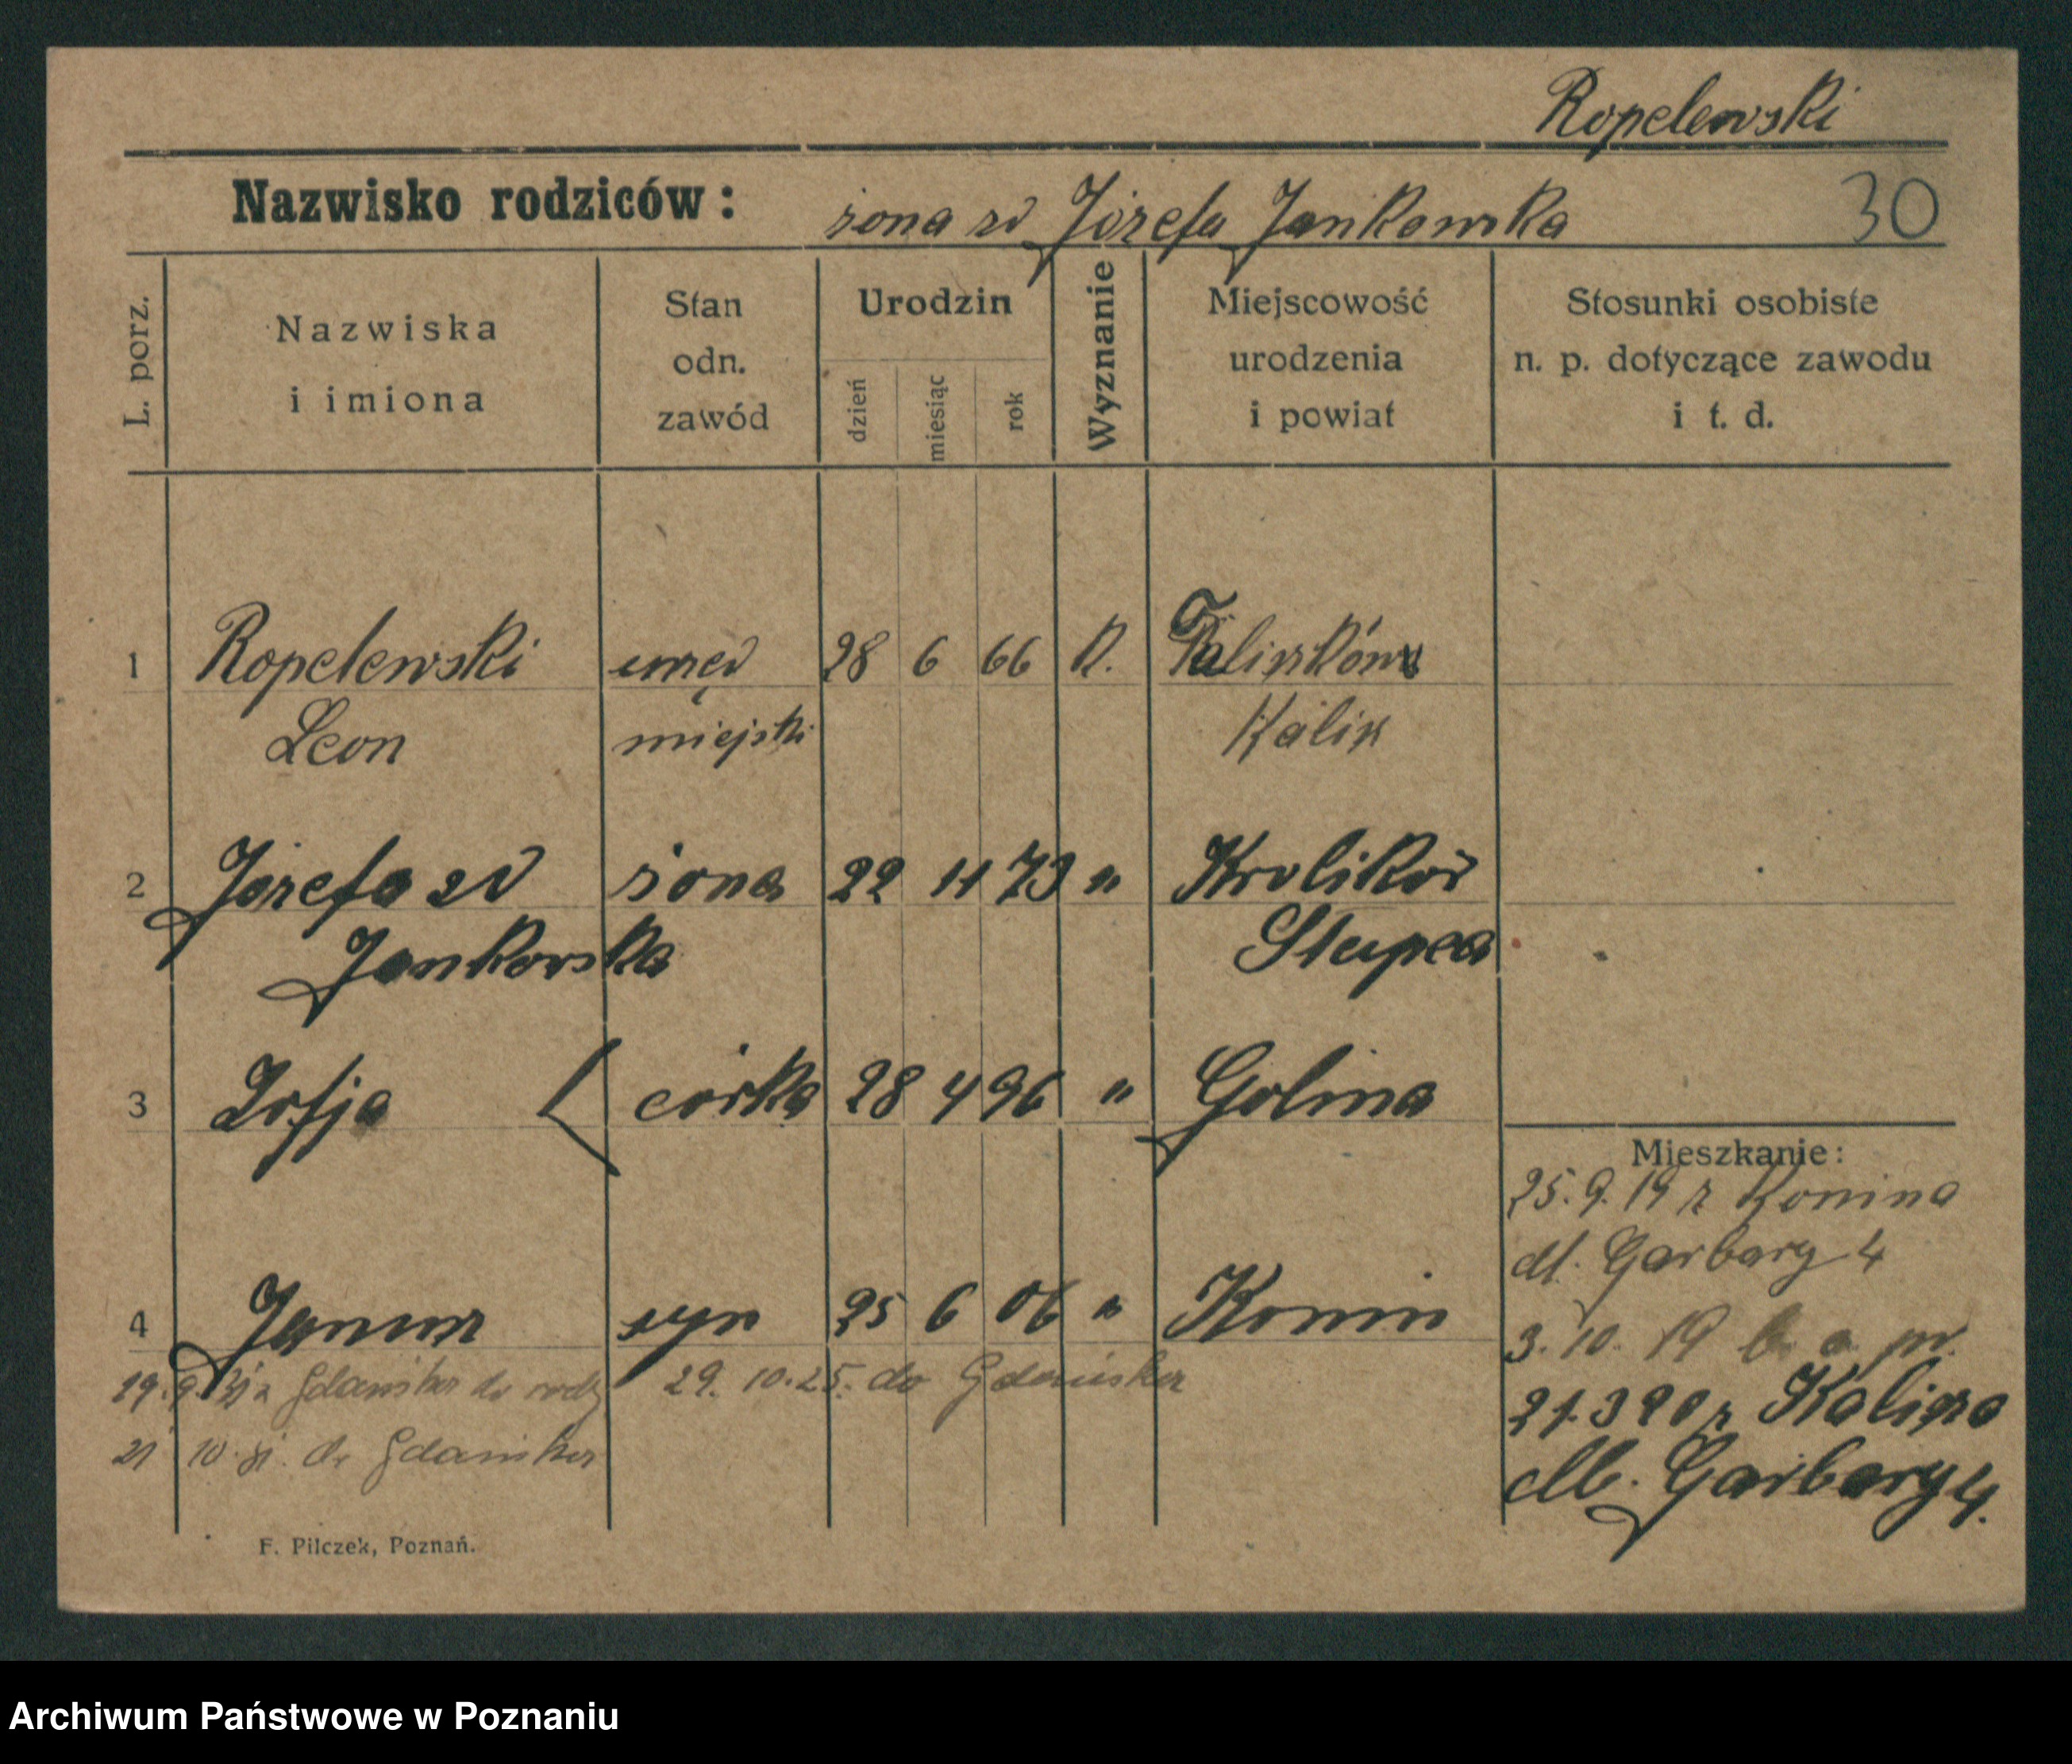 Ropelewski
Nazwisko rodziców: żona zd Józefa Jankowska 30
L. porz.
Nazwiska
i imiona
Stan
odn.
zawód
Urodzin
dzień
miesiąc
rok
Wyznanie
Miejscowość
urodzenia
i powiat
Stosunki osobiste
n. p. dotyczące zawodu
i t. d.
1 Ropelewski urzęd 28 6 66 K.
Leon miejski Kalisz
2 Józefa zd żona 22 11 73 " Krolikow
Jankowska Słupca
3 Zofja córka 28 4 96 " Golina
Mieszkanie:
25.9.19 z Konina
dł. Garbary 4
4 Janusz syn 25 6 06 " Konin
3. 10. 19
29. 10. 25. do Gdańska
21.3 20 z Kalisza
Garbary 4.
do Gdańska
F. Pilczek, Poznań.
Archiwum Państwowe w Poznaniu